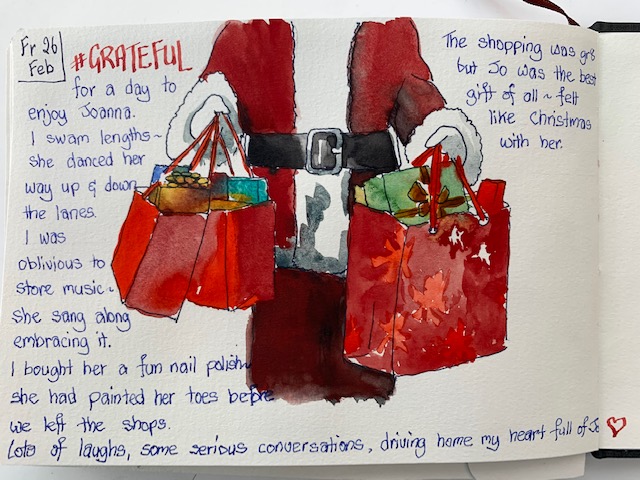 Fr 26
Feb
#GRATEFUL
for a day to
enjoy Joanna.
I swam lengths~
she danced her
way up & down
the lanes.
I was
oblivious to
store music~
she sang along
embracing it.
I bought her a fun nail polish
she had painted her toes before
we left the shops.
Lots of laughs, some serious conversations, driving home my heart full of Jo
The shopping was gr8
but Jo was the best
gift of all ~ felt
like Christmas
with her.